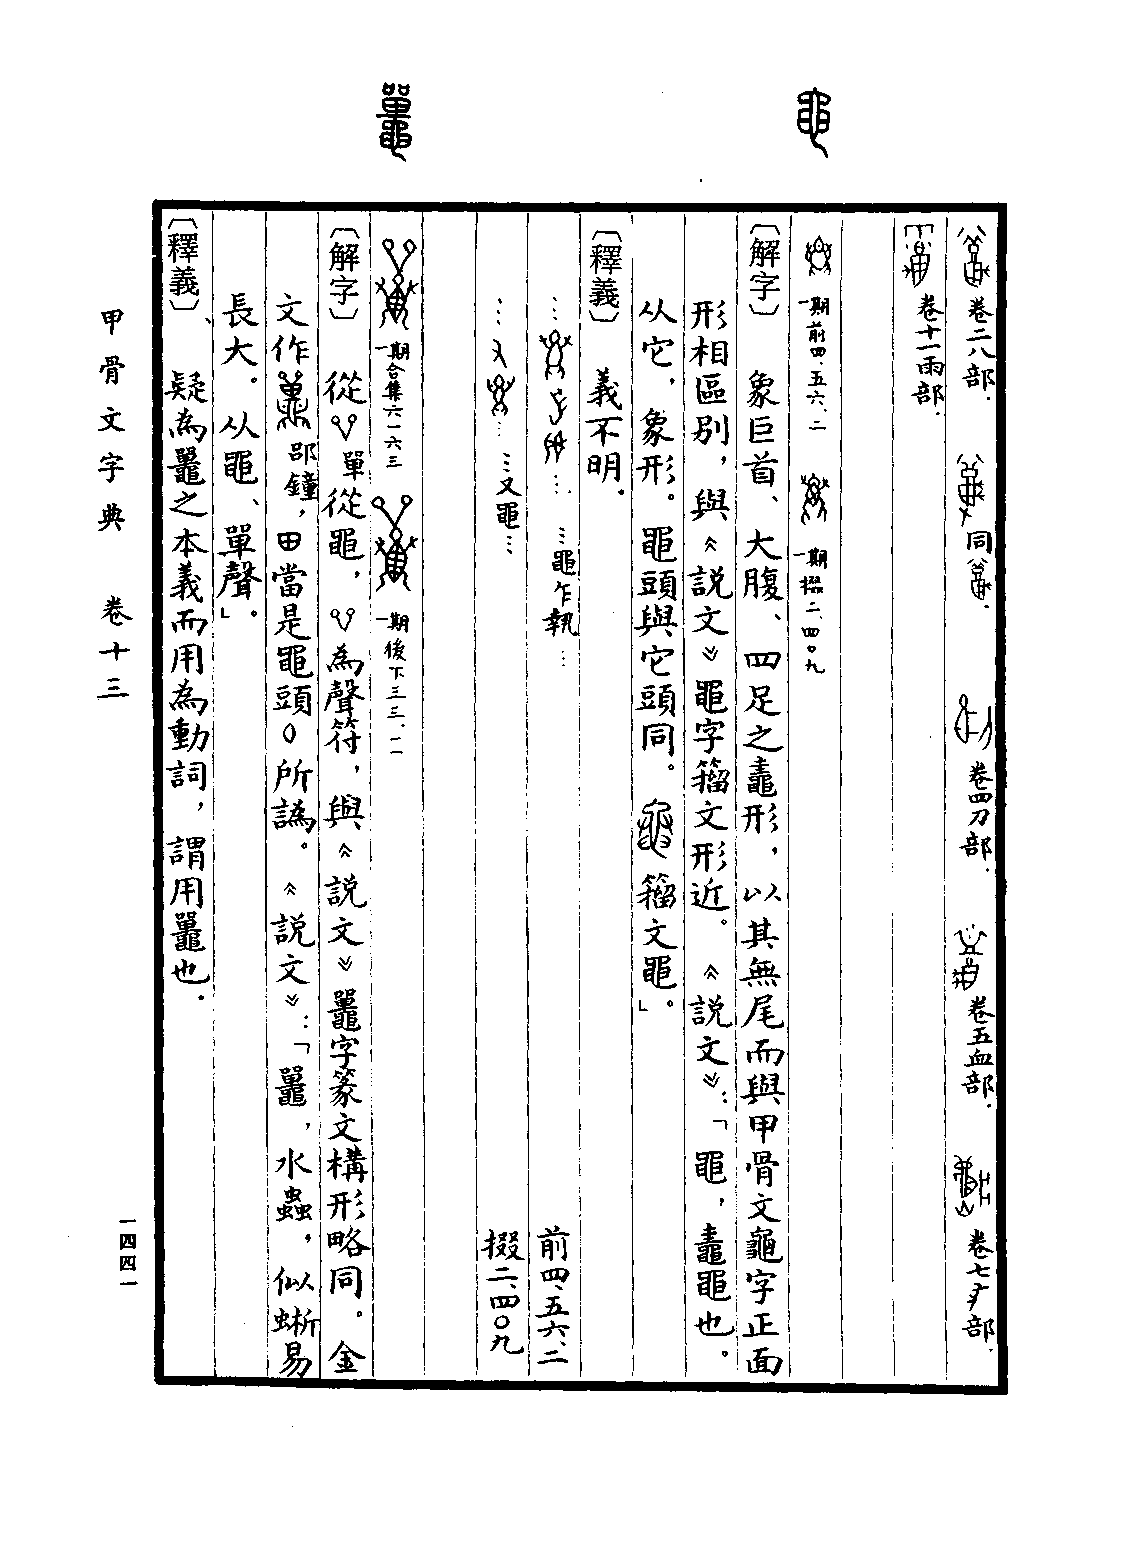 黽
鼉
卷二八部． 同 ． 卷四刀部． 卷五血部． 卷七疒部．
卷十一雨部．
一期前四、五六、二 一期掇二、四〇九
〔解字〕 象巨首、大腹、四足之鼃形，以其無尾而與甲骨文龜字正面
形相區別，與《說文》黽字籀文形近。《說文》：「黽，鼃黽也。
从它，象形。黽頭與它頭同。籀文黽」。
〔釋義〕 義不明．
…黽乍執… 前四、五六、二
…又黽… 掇二、四〇九
一期合集六一六三 一期後下三三、一一
〔解字〕 從單從黽，為聲符，與《說文》鼉字篆文構形略同。金
文作 郘鐘，田當是黽頭所譌。《說文》：「鼉，水蟲，似蜥易
長大。从黽、單聲」。
〔釋義〕 疑為鼉之本義而用為動詞，謂用鼉也．
甲骨文字典 卷十三
一四四一